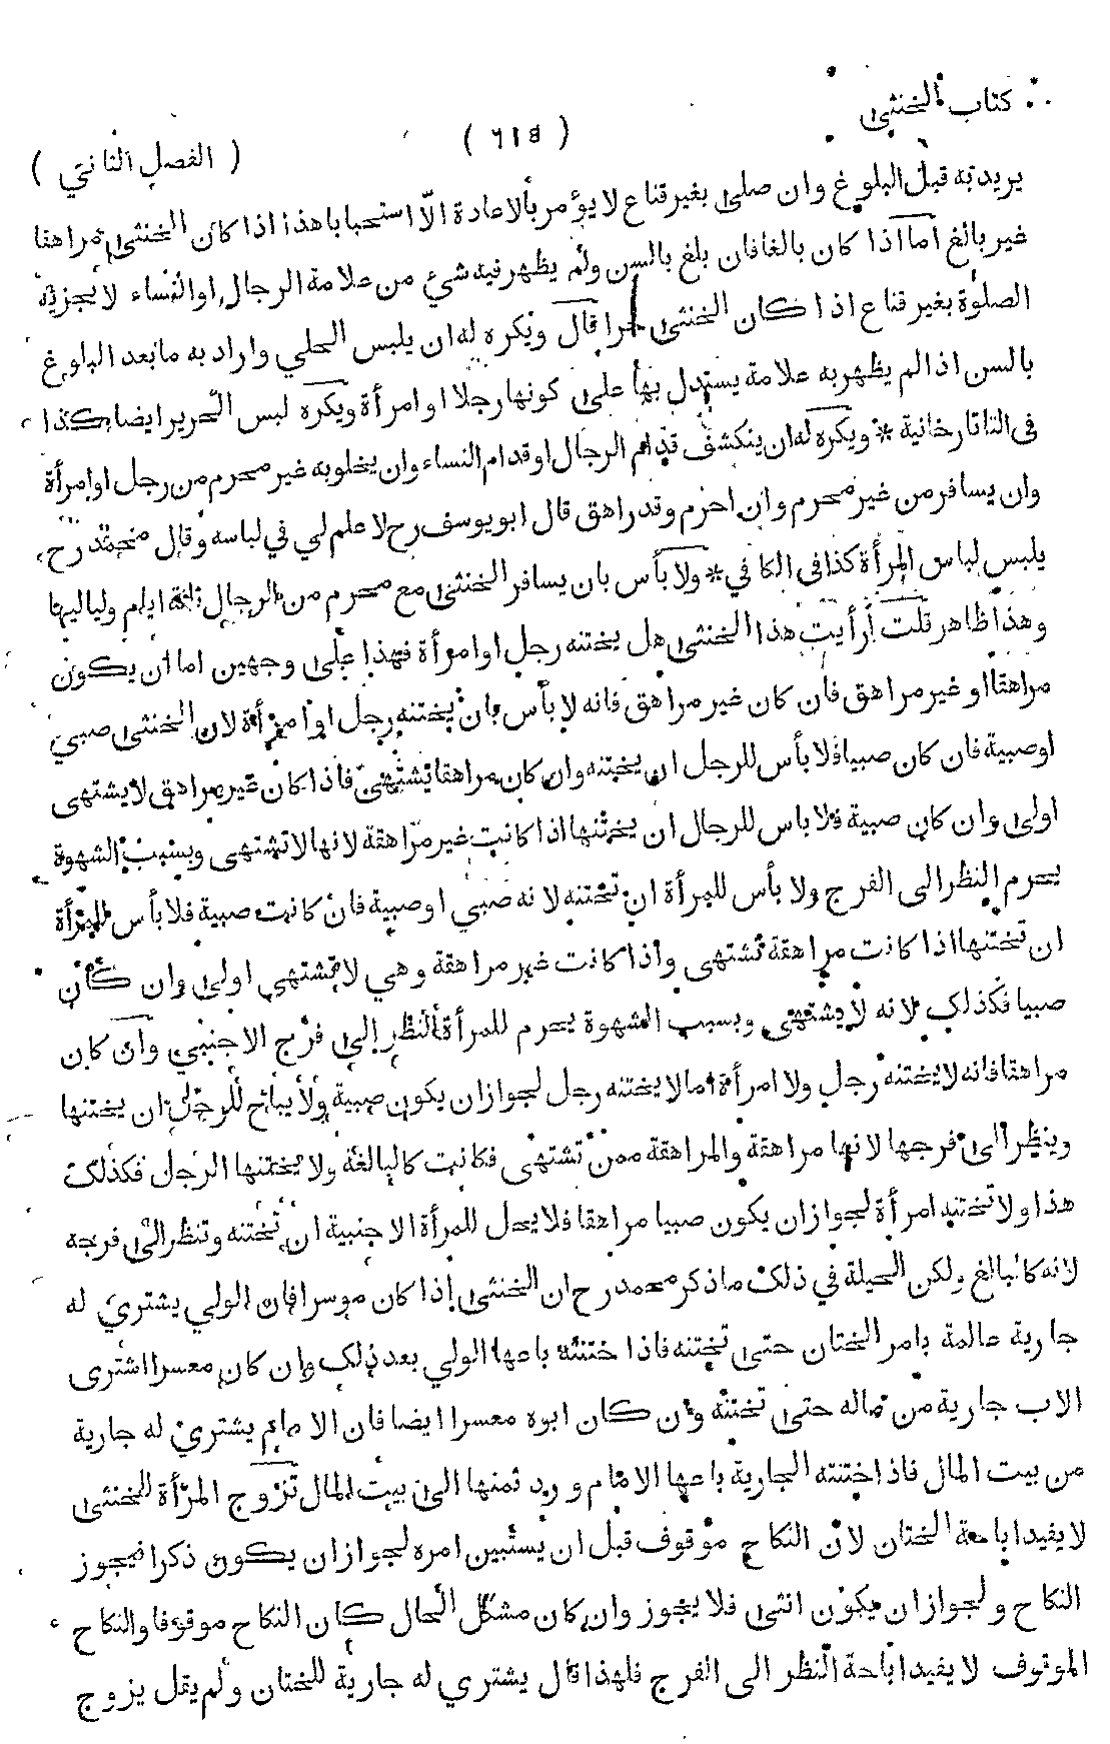 كتاب الخنثى
( ٦١٥ )
( الفصل الثاني )
يريد به قبل البلوغ وان صلى بغير قناع لا يؤمر بالاعادة الّا استحبابا هذا اذا كان الخنثى مراهقا
غير بالغ اما اذا كان بالغا فان بلغ بالسن ولم يظهر فيه شئ من علامة الرجال او النساء لا تجزيه
الصلوة بغير قناع اذا كان الخنثى حرا قال ويكره له ان يلبس الحلي واراد به ما بعد البلوغ
بالسن اذا لم يظهر به علامة يستدل بها على كونها رجلا او امرأة ويكره لبس الحرير ايضا كذا
فى التاتارخانية * ويكره له ان ينكشف قدام الرجال او قدام النساء وان يخلو به غير محرم من رجل او امرأة
وان يسافر من غير محرم وان احرم وقد راهق قال ابو يوسف رح لا علم لي في لباسه وقال محمد رح
يلبس لباس المرأة كذا فى الكافي * ولا بأس بان يسافر الخنثى مع محرم من الرجال ثلثة ايام ولياليها
وهذا ظاهر قلت أرأيت هذا الخنثى هل يختنه رجل او امرأة فهذا على وجهين اما ان يكون
مراهقا او غير مراهق فان كان غير مراهق فانه لا بأس بان يختنه رجل او امرأة لان الخنثى صبي
او صبية فان كان صبيا فلا بأس للرجل ان يختنه وان كان مراهقا يشتهى فاذا كان غير مراهق لا يشتهى
اولى وان كان صبية فلا باس للرجال ان يختنها اذا كانت غير مراهقة لانها لا تشتهى وبسبب الشهوة
يحرم النظر الى الفرج ولا بأس للمرأة ان تختنه لانه صبي او صبية فان كانت صبية فلا بأس للمرأة
ان تختنها اذا كانت مراهقة تشتهى واذا كانت غير مراهقة وهي لا تشتهى اولى وان كان
صبيا فكذلك لانه لا يشتهى وبسبب الشهوة يحرم للمرأة النظر الى فرج الاجنبي وان كان
مراهقا فانه لا يختنه رجل ولا امرأة اما لا يختنه رجل لجواز ان يكون صبية ولا يباح للرجل ان يختنها
وينظر الى فرجها لانها مراهقة والمراهقة ممن تشتهى فكانت كالبالغة ولا يختنها الرجل فكذلك
هذا ولا تختنه امرأة لجواز ان يكون صبيا مراهقا فلا يحل للمرأة الاجنبية ان تختنه وتنظر الى فرجه
لانه كالبالغ ولكن الحيلة في ذلك ما ذكر محمد رح ان الخنثى اذا كان موسرا فان الولي يشتري له
جارية عالمة بامر الختان حتى تختنه فاذا ختنته باعها الولي بعد ذلك وان كان معسرا اشترى
الاب جارية من ماله حتى تختنه وان كان ابوه معسرا ايضا فان الامام يشتري له جارية
من بيت المال فاذا ختنته الجارية باعها الامام ورد ثمنها الى بيت المال تزوج المرأة الخنثى
لا يفيد اباحة الختان لان النكاح موقوف قبل ان يستبين امره لجواز ان يكون ذكرا فيجوز
النكاح ولجواز ان يكون انثى فلا يجوز وان كان مشكل الحال كان النكاح موقوفا والنكاح
الموقوف لا يفيد اباحة النظر الى الفرج فلهذا قال يشتري له جارية للختان ولم يقل يزوج